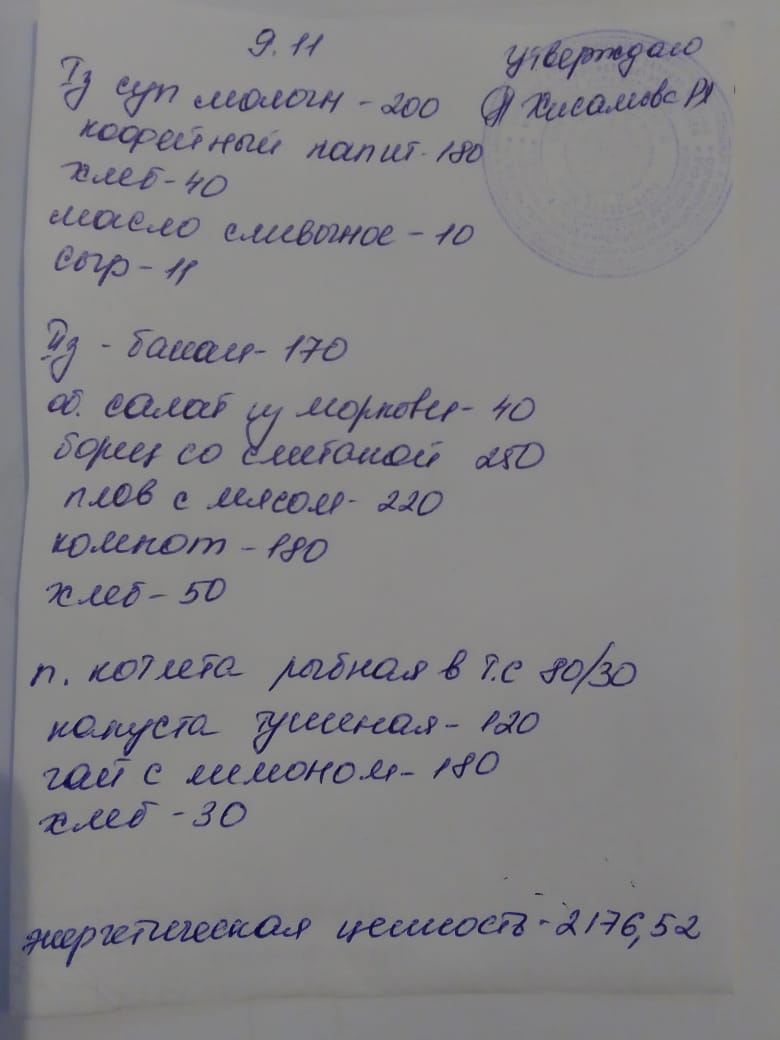 9.11
утверждаю
Iз суп молочн - 200
Хисамова РЯ
кофейный напит - 180
хлеб - 40
масло сливычное - 10
сыр - 11
IIз - банан - 170
об. салат из моркови - 40
борщ со сметаной 250
плов с мясом - 220
компот - 180
хлеб - 50
п. котлета рыбная в т.с 80/30
капуста тушеная - 120
чай с лимоном - 180
хлеб - 30
энергетическая ценность - 2176,52